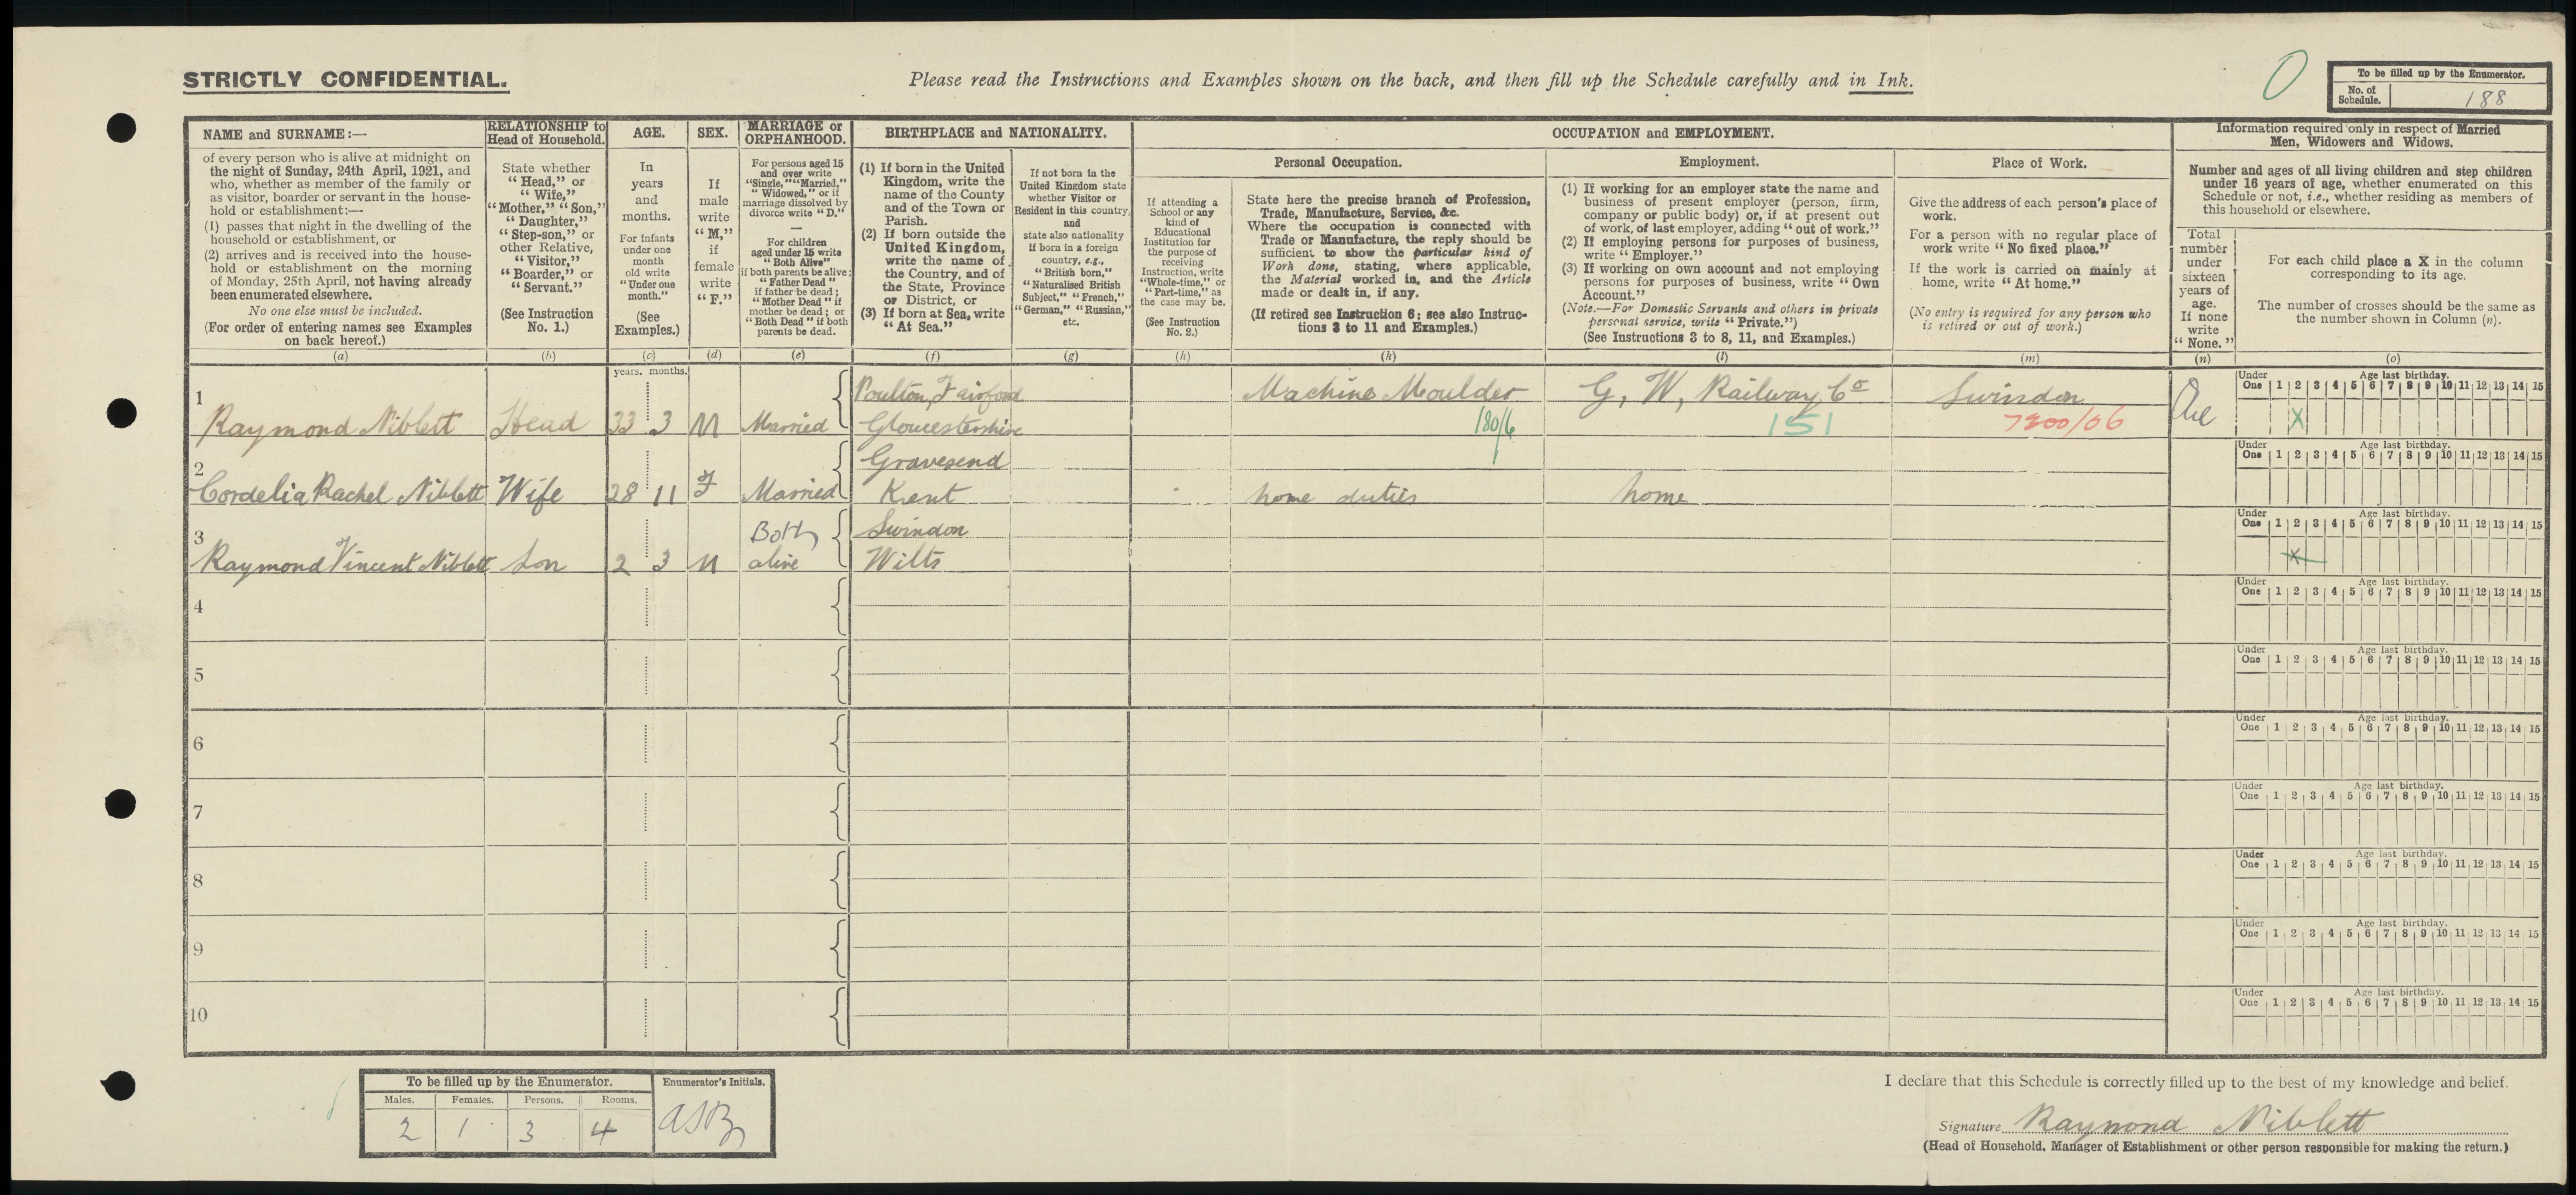 STRICTLY CONFIDENTIAL.
Please read the Instructions and Examples shown on the back, and then fill up the Schedule carefully and in Ink.
0
To be filled up by the Enumerator.
No. of Schedule. 188
NAME and SURNAME:—
of every person who is alive at midnight on
the night of Sunday, 24th April, 1921, and
who, whether as member of the family or
as visitor, boarder or servant in the house-
hold or establishment:—
(1) passes that night in the dwelling of the
household or establishment, or
(2) arrives and is received into the house-
hold or establishment on the morning
of Monday, 25th April, not having already
been enumerated elsewhere.
No one else must be included.
(For order of entering names see Examples
on back hereof.)
(a)
RELATIONSHIP to
Head of Household.
State whether
"Head," or
"Wife,"
"Mother," "Son,"
"Daughter,"
"Step-son," or
other Relative,
"Visitor,"
"Boarder," or
"Servant."
(See Instruction
No. 1.)
(b)
AGE.
In
years
and
months.
For infants
under one
month
old write
"Under one
month."
(See
Examples.)
(c)
SEX.
If
male
write
"M,"
if
female
write
"F."
(d)
MARRIAGE or
ORPHANHOOD.
For persons aged 15
and over write
"Single," "Married,"
"Widowed," or if
marriage dissolved by
divorce write "D."
—
For children
aged under 15 write
"Both Alive"
if both parents be alive;
"Father Dead"
if father be dead;
"Mother Dead" if
mother be dead; or
"Both Dead" if both
parents be dead.
(e)
BIRTHPLACE and NATIONALITY.
(1) If born in the United
Kingdom, write the
name of the County
and of the Town or
Parish.
(2) If born outside the
United Kingdom,
write the name of
the Country, and of
the State, Province
or District, or
(3) If born at Sea, write
"At Sea."
(f)
If not born in the
United Kingdom state
whether Visitor or
Resident in this country,
and
state also nationality
if born in a foreign
country, e.g.,
"British born,"
"Naturalised British
Subject," "French,"
"German," "Russian,"
etc.
(g)
OCCUPATION and EMPLOYMENT.
If attending a
School or any
kind of
Educational
Institution for
the purpose of
receiving
Instruction, write
"Whole-time," or
"Part-time," as
the case may be.
(See Instruction
No. 2.)
(h)
Personal Occupation.
State here the precise branch of Profession,
Trade, Manufacture, Service, &c.
Where the occupation is connected with
Trade or Manufacture, the reply should be
sufficient to show the particular kind of
Work done, stating, where applicable,
the Material worked in, and the Article
made or dealt in, if any.
(If retired see Instruction 6; see also Instruc-
tions 3 to 11 and Examples.)
(k)
Employment.
(1) If working for an employer state the name and
business of present employer (person, firm,
company or public body) or, if at present out
of work, of last employer, adding "out of work."
(2) If employing persons for purposes of business,
write "Employer."
(3) If working on own account and not employing
persons for purposes of business, write "Own
Account."
(Note.—For Domestic Servants and others in private
personal service, write "Private.")
(See Instructions 3 to 8, 11, and Examples.)
(l)
Place of Work.
Give the address of each person's place of
work.
For a person with no regular place of
work write "No fixed place."
If the work is carried on mainly at
home, write "At home."
(No entry is required for any person who
is retired or out of work.)
(m)
Information required only in respect of Married
Men, Widowers and Widows.
Number and ages of all living children and step children
under 16 years of age, whether enumerated on this
Schedule or not, i.e., whether residing as members of
this household or elsewhere.
Total
number
under
sixteen
years of
age.
If none
write
"None."
(n)
For each child place a X in the column
corresponding to its age.
The number of crosses should be the same as
the number shown in Column (n).
(o)
years. months.
1 Raymond Niblett Head 33 3 M Married Poulton, Fairford Gloucestershire Machine Moulder 180/6 G, W, Railway Co 151 Swindon 7300/06 One
Under One Age last birthday. 1 2 3 4 5 6 7 8 9 10 11 12 13 14 15
X
2 Cordelia Rachel Niblett Wife 28 11 F Married Gravesend Kent home duties home
Under One Age last birthday. 1 2 3 4 5 6 7 8 9 10 11 12 13 14 15
3 Raymond Vincent Niblett Son 2 3 M Both alive Swindon Wilts
Under One Age last birthday. 1 2 3 4 5 6 7 8 9 10 11 12 13 14 15
X
4
Under One Age last birthday. 1 2 3 4 5 6 7 8 9 10 11 12 13 14 15
5
Under One Age last birthday. 1 2 3 4 5 6 7 8 9 10 11 12 13 14 15
6
Under One Age last birthday. 1 2 3 4 5 6 7 8 9 10 11 12 13 14 15
7
Under One Age last birthday. 1 2 3 4 5 6 7 8 9 10 11 12 13 14 15
8
Under One Age last birthday. 1 2 3 4 5 6 7 8 9 10 11 12 13 14 15
9
Under One Age last birthday. 1 2 3 4 5 6 7 8 9 10 11 12 13 14 15
10
Under One Age last birthday. 1 2 3 4 5 6 7 8 9 10 11 12 13 14 15
To be filled up by the Enumerator. Enumerator's Initials.
Males. Females. Persons. Rooms.
2 1 3 4
I declare that this Schedule is correctly filled up to the best of my knowledge and belief.
Signature Raymond Niblett
(Head of Household, Manager of Establishment or other person responsible for making the return.)